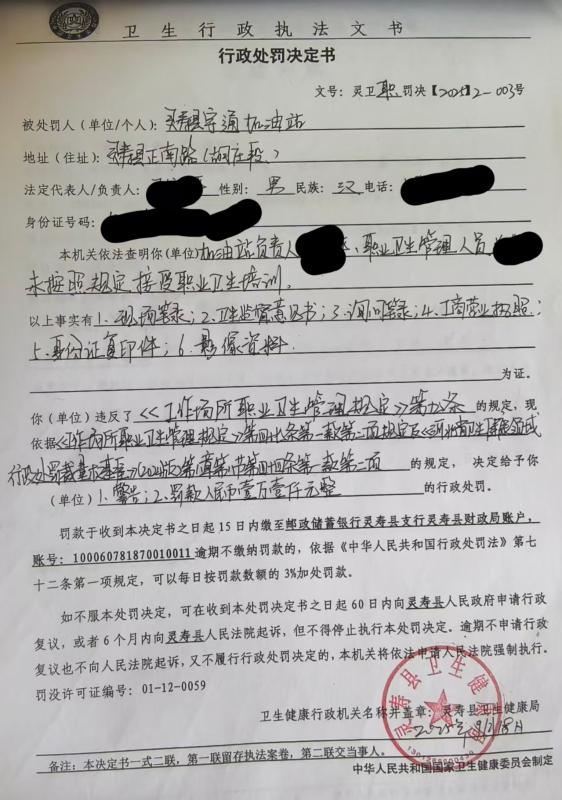 卫生行政执法文书
行政处罚决定书
文号：灵卫职罚决【2025】2-003号
被处罚人（单位/个人）：灵寿县宇通加油站
地址（住址）：灵寿县正南路（胡庄段）
法定代表人/负责人： 性别：男 民族：汉 电话：
身份证号码：
本机关依法查明你（单位）加油站负责人 、职业卫生管理人员
未按照规定接受职业卫生培训。
以上事实有1.现场笔录；2.卫生监督意见书；3.询问笔录；4.工商营业执照；
5.身份证复印件；6.影像资料
为证。
你（单位）违反了《工作场所职业卫生管理规定》第九条 的规定，现
依据《工作场所职业卫生管理规定》第四十八条第一款第二项规定及《河北省卫生健康领域
行政处罚裁量基准》 第一款第二项 的规定，决定给予你
（单位）1.警告；2.罚款人民币壹万壹仟元整 的行政处罚。
罚款于收到本决定书之日起15日内缴至邮政储蓄银行灵寿县支行灵寿县财政局账户，
账号：100060781870010011 逾期不缴纳罚款的，依据《中华人民共和国行政处罚法》第七
十二条第一项规定，可以每日按罚款数额的3%加处罚款。
如不服本处罚决定，可在收到本处罚决定书之日起60日内向灵寿县人民政府申请行政
复议，或者6个月内向灵寿县人民法院起诉，但不得停止执行本处罚决定。逾期不申请行政
复议也不向人民法院起诉，又不履行行政处罚决定的，本机关将依法申请人民法院强制执行。
罚没许可证编号：01-12-0059
卫生健康行政机关名称并盖章：灵寿县卫生健康局
2025年9月18日
灵寿县卫生健康局
备注：本决定书一式二联，第一联留存执法案卷，第二联交当事人。
中华人民共和国国家卫生健康委员会制定